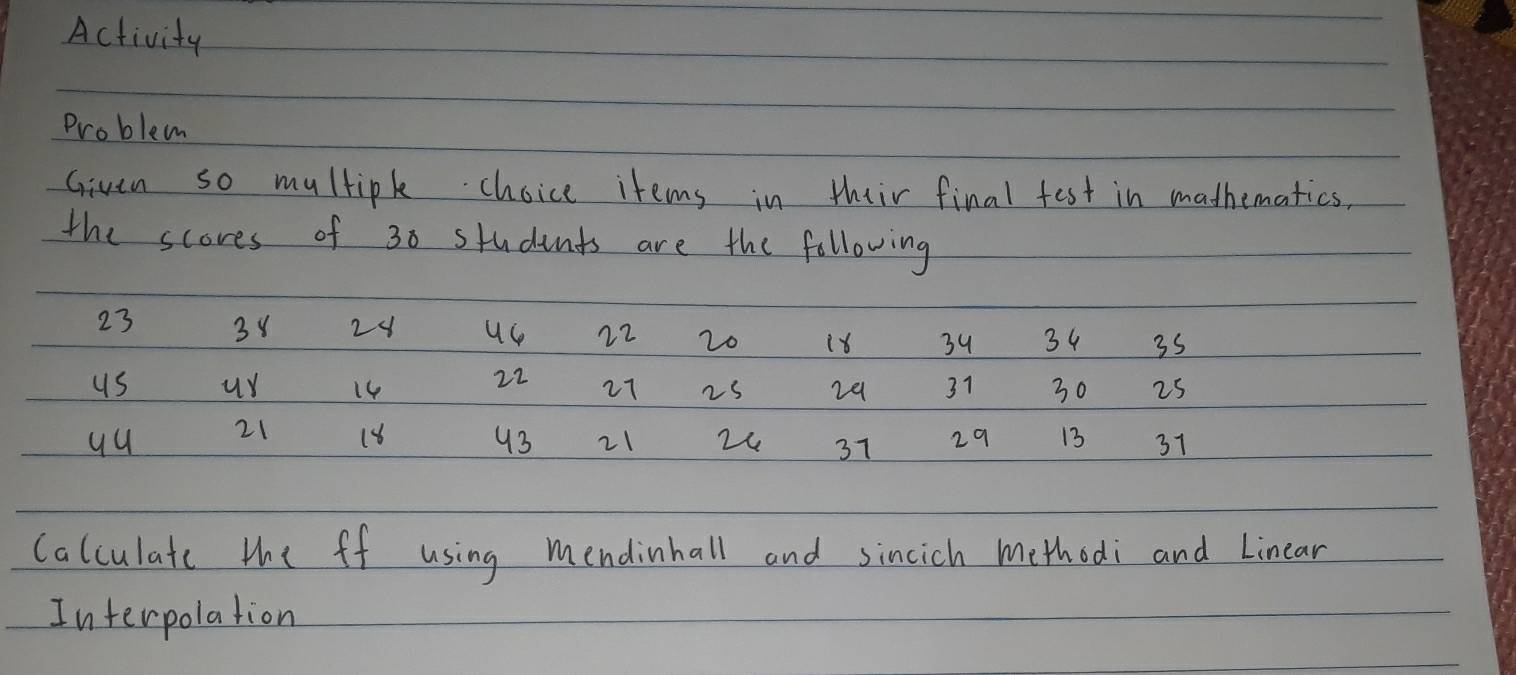 Activity
Problem
Given 50 multiple choice items in their final test in mathematics,
the scores of 30 students are the following
23 38 28 46 22 20 18 34 36 35
45 48 16 22 27 25 29 31 30 25
44 21 18 43 21 26 37 29 13 37
Calculate the ff using Mendinhall and sincich Methodi and Linear
Interpolation